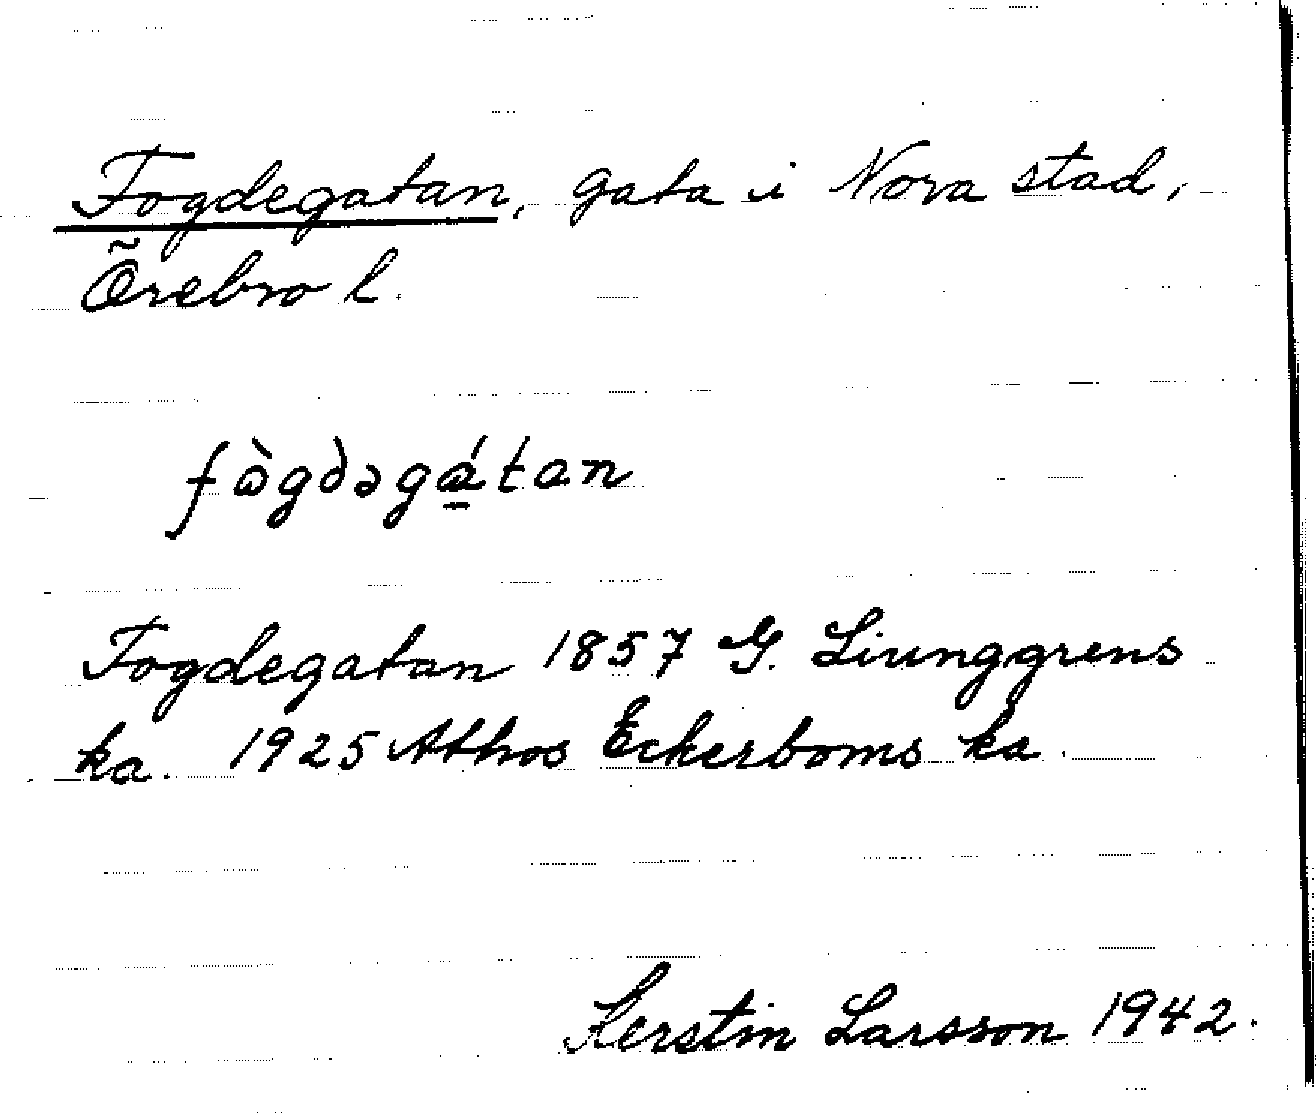 Fogdegatan, gata i Nora stad,
Örebro l.
fògdəgá̱tan
Fogdegatan 1857 G. Liunggrens
ka. 1925 Athos Eckerboms ka
Kerstin Larsson 1942.